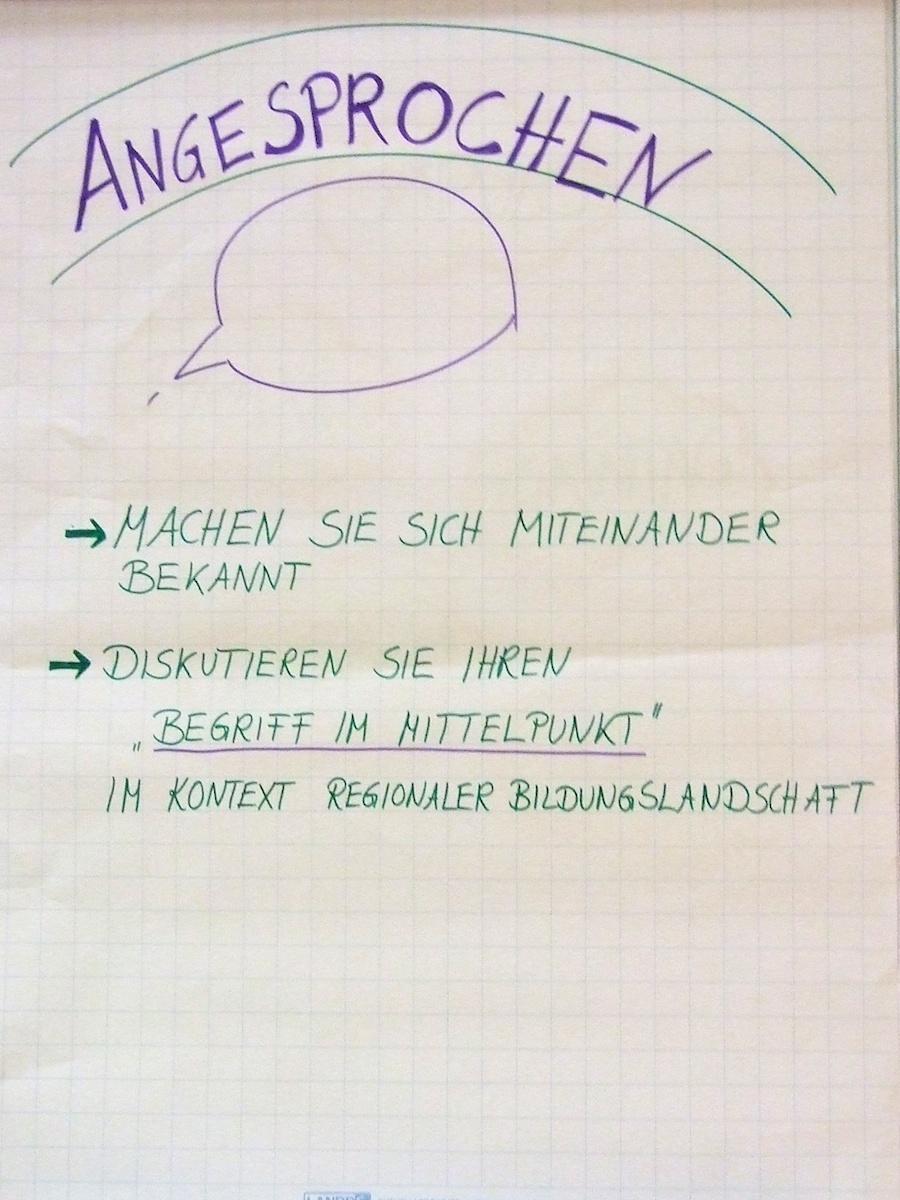 ANGESPROCHEN
→ MACHEN SIE SICH MITEINANDER
BEKANNT
→ DISKUTIEREN SIE IHREN
„BEGRIFF IM MITTELPUNKT"
IM KONTEXT REGIONALER BILDUNGSLANDSCHAFT